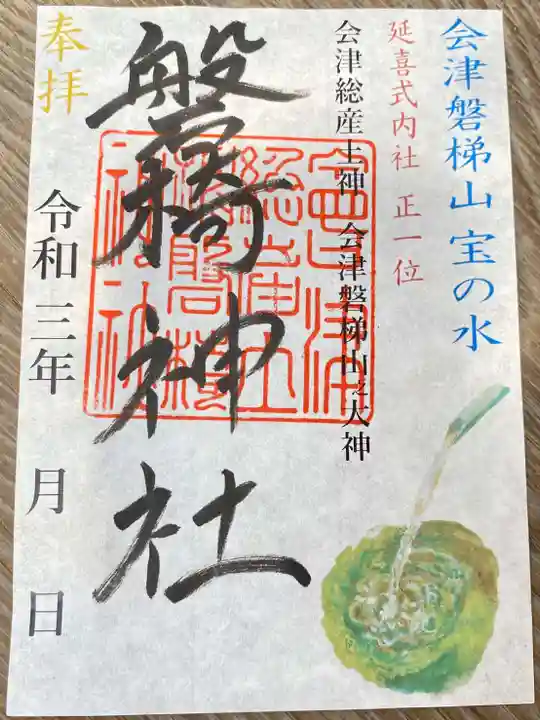 会津磐梯山 宝の水
延喜式内社 正一位
会津総産土神 会津磐梯山之大神
磐椅神社
奉拝
令和三年 月 日